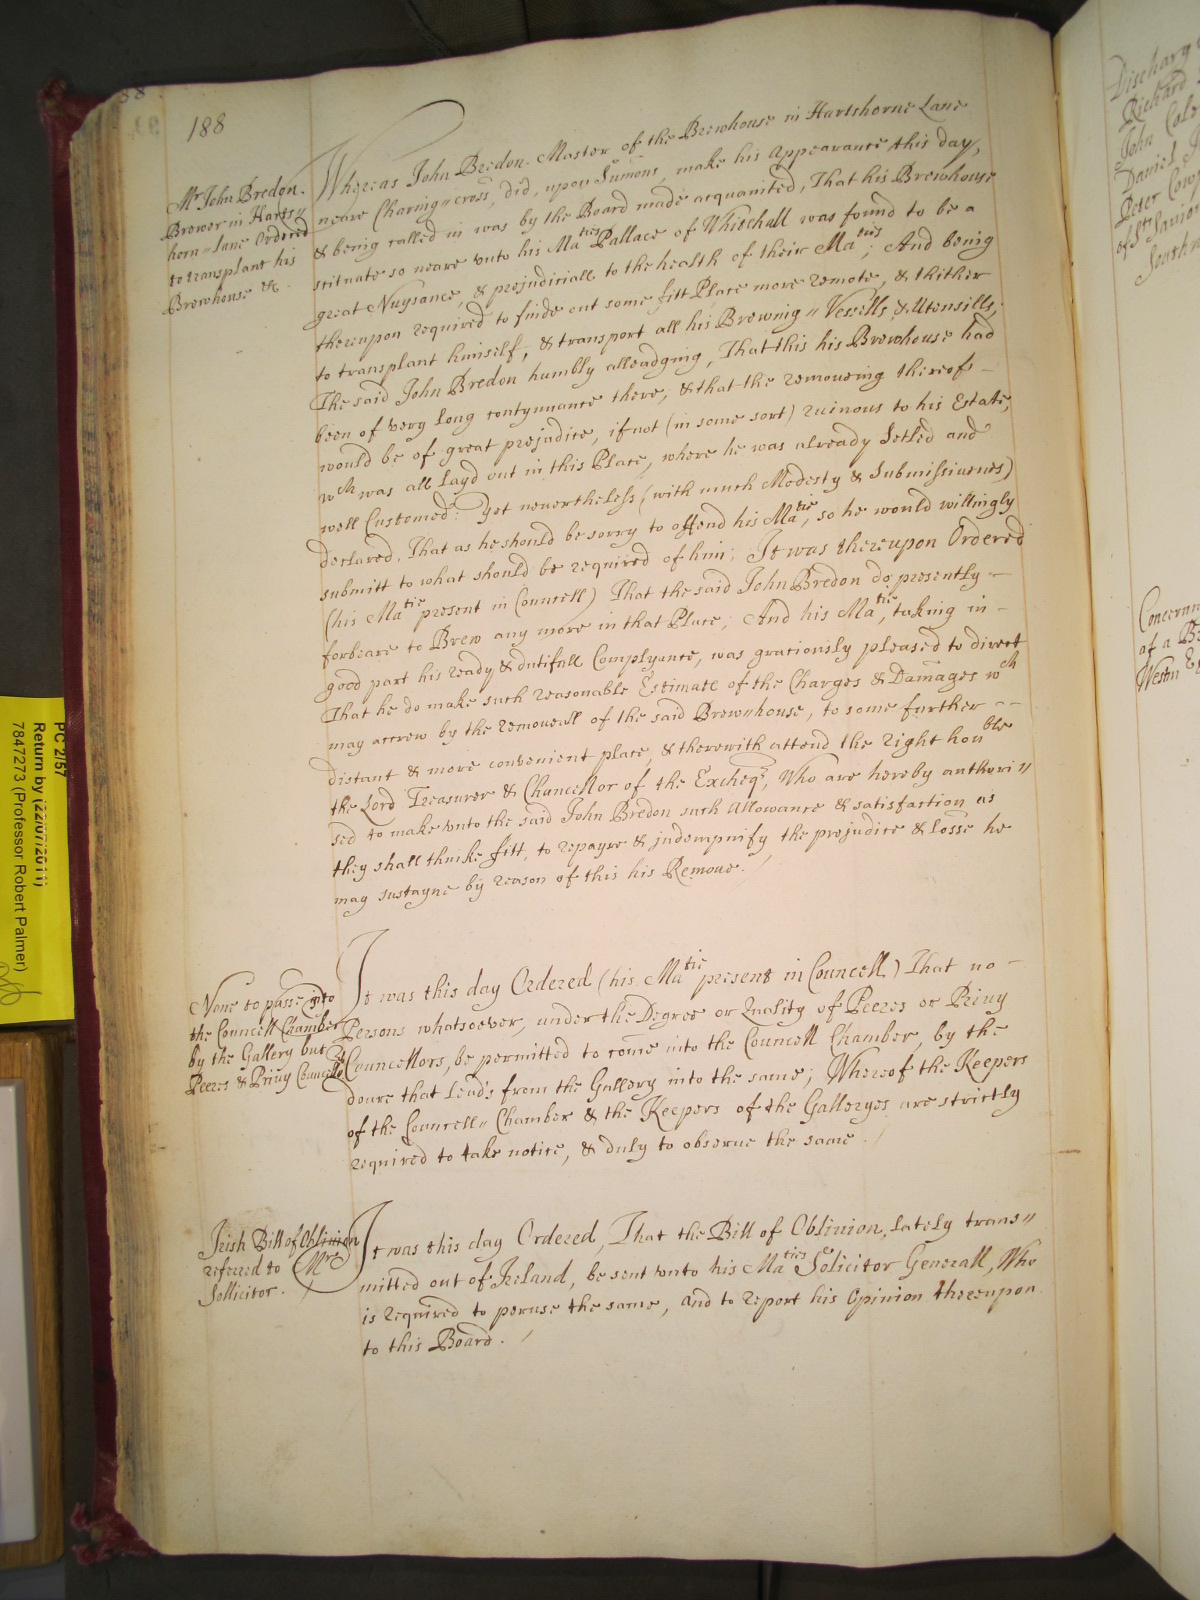 188
Mr John Bredon.
Brewer in Harts〃
horn=lane Ordered
to transplant his
Brewhouse &c.
Whereas John Bredon. Master of the Brewhouse in Hartshorne Lane
neare Charing〃cross, did, upon Sumons, make his Appearance this day,
& being called in was by the Board made acquainted, That his Brewhouse
scituate so neare vnto his Maties Pallace of Whitehall was found to be a
great Nuysance, & prejudiciall to the health of their Maties; And being
thereupon required to finde out some fitt Place more remote, & thither
to transplant himself, & transport all his Brewing〃Vessells & Utensills;
The said John Bredon humbly alleadging, That this his Brewhouse had
been of very long contynuance there, & that the remoueing thereof –
would be of great prejudice, if not (in some sort) ruinous to his Estate,
wch was all layd out in this Place, where he was already Setled and
well Customed: Yet neuertheless (with much Modesty & Submissiuenes)
declared, That as he should be sorry to offend his Matie, so he would willingly
submitt to what should be required of him; It was thereupon Ordered
(his Matie present in Councell) That the said John Bredon do presently –
forbeare to Brew any more in that Place; And his Matie, taking in –
good part his ready & dutifull Complyance, was graciously pleased to direct
That he do make such reasonable Estimate of the Charges & Damages wch
may accrew by the remoueall of the said Brew〃house, to some further – –
distant & more convenient place, & therewith attend the right honble
the Lord Treasurer & Chancellor of the Excheqr, Who are hereby authori〃
sed to make vnto the said John Bredon such Allowance & satisfaction as
they shall thinke fitt, to repayre & indempnify the prejudice & losse he
may sustayne by reason of this his Remoue. /
None to passe into
the Councell Chamber
by the Gallery but
Peeres & Priuy Councellrs
It was this day Ordered (his Matie present in Councell) That no –
Persons whatsoever, under the Degree or Quality of Peeres or Priuy
Councellors, be permitted to come into the Councell Chamber, by the
doore that leads from the Gallery into the same; Whereof the Keepers
of the Councell〃Chamber & the Keepers of the Galleryes are strictly
required to take notice, & duly to obserue the same. /
Irish Bill of Oblivion
referred to Mr
Sollicitor.
It was this day Ordered, That the Bill of Oblivion, lately trans〃
mitted out of Ireland, be sent vnto his Maties Solicitor Generall, Who
is required to peruse the same, and to report his Opinion thereupon
to this Board. /
Discharg
Richard
John Cole
Daniel
Peter Cow
of St Savio
Southw
Concern
of a B
Weston
PC 2/57
Return by (22/07/2011)
7847273 (Professor Robert Palmer)